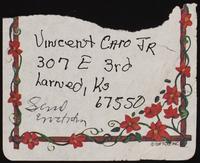 Vincent Caro JR
307 E 3rd
Larned, Ks
67550
Send